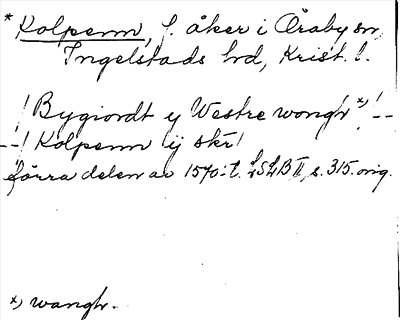 * Kolpenn, f. åker i Öraby sn,
Ingelstads hrd, Krist. l.
! Bygiordt y Westre wongh *) ! --
--! Kolpenn ij skr !
förra delen av 1570-t. LSLB II, s. 315. orig.
*) wangh.